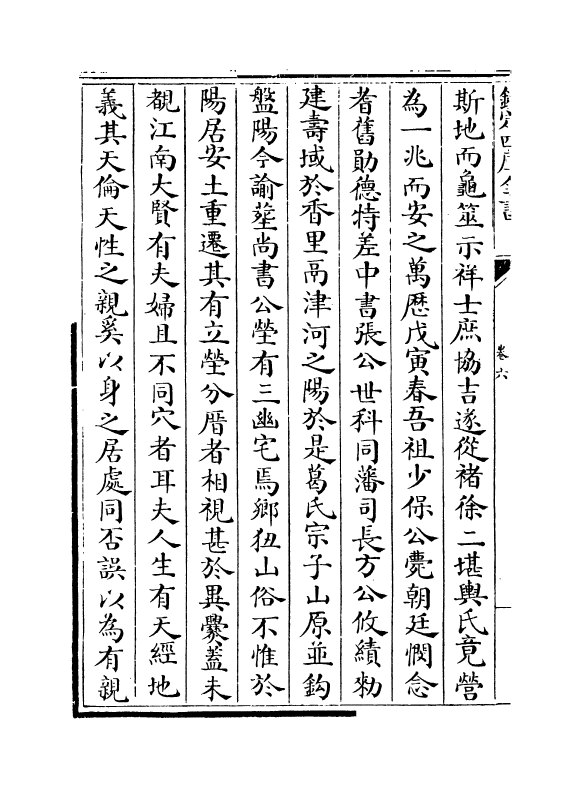 欽定四庫全書
卷六
斯地而龜筮示祥士庶協吉遂從禇徐二堪輿氏竟營
為一兆而安之萬歴戊寅春吾祖少保公薨朝廷憫念
耆舊勛德特差中書張公世科同藩司長方公攸績勑
建壽域於香里鬲津河之陽於是葛氏宗子山原並鈎
盤陽今諭塟尚書公塋有三幽宅焉鄉狃山俗不惟於
陽居安土重遷其有立塋分厝者相視甚於異爨蓋未
覩江南大賢有夫婦且不同穴者耳夫人生有天經地
義其天倫天性之親奚以身之居處同否誤以為有親